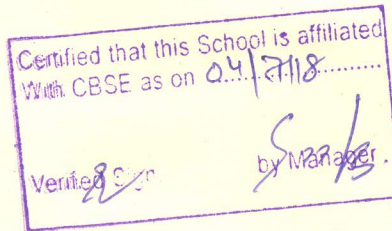 Certified that this School is affiliated
With CBSE as on 04/7/18
Verified Sign by Manager.